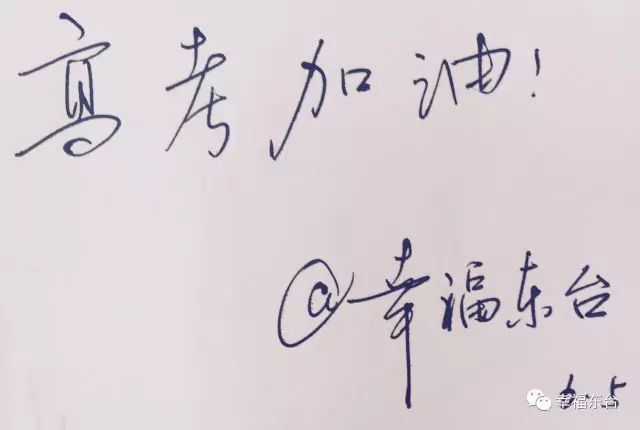 高考加油!
@幸福东台
6.5
幸福东台